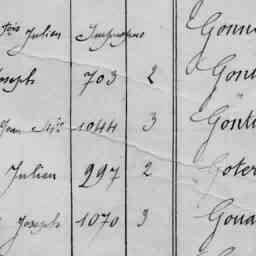 Julien Impropre Gonn
Joseph 703 2 Gont
Jean 1044 3 Gonti
Julien 997 2 Goter
Joseph 1070 3 Goua